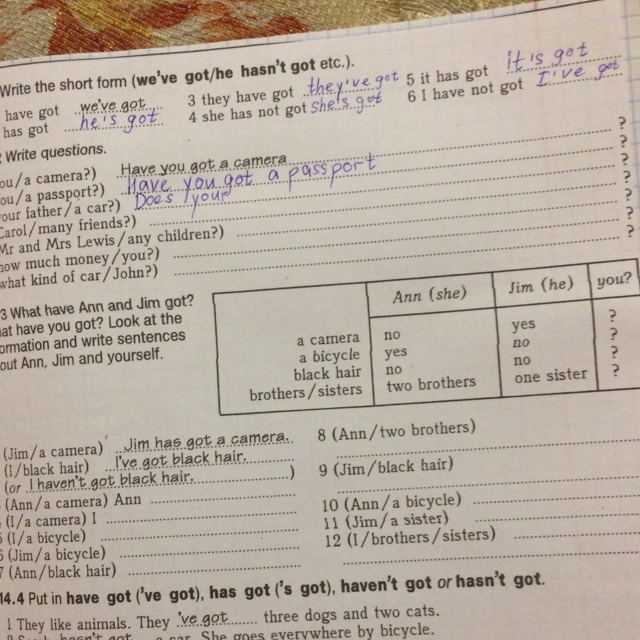 Write the short form (we've got/he hasn't got etc.).
have got we've got 3 they have got they've got 5 it has got it's got
has got he's got 4 she has not got she's got 6 I have not got I've got
Write questions.
ou/a camera?) Have you got a camera ?
ou/a passport?) Have you got a passport ?
our father/a car?) Does your ?
Carol/many friends?) ?
Mr and Mrs Lewis/any children?) ?
how much money/you?) ?
what kind of car/John?) ?
3 What have Ann and Jim got?
at have you got? Look at the
ormation and write sentences
out Ann, Jim and yourself.
Ann (she) Jim (he) you?
a camera no yes ?
a bicycle yes no ?
black hair no no ?
brothers/sisters two brothers one sister ?
(Jim/a camera) Jim has got a camera.
(I/black hair) I've got black hair.
(or I haven't got black hair. )
(Ann/a camera) Ann
(I/a camera) I
(I/a bicycle)
(Jim/a bicycle)
7 (Ann/black hair)
8 (Ann/two brothers)
9 (Jim/black hair)
10 (Ann/a bicycle)
11 (Jim/a sister)
12 (I/brothers/sisters)
14.4 Put in have got ('ve got), has got ('s got), haven't got or hasn't got.
1 They like animals. They 've got three dogs and two cats.
hasn't got a car. She goes everywhere by bicycle.